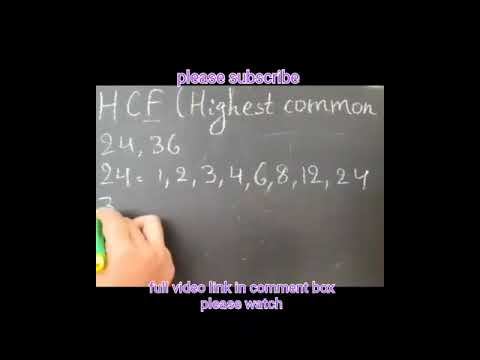 please subscribe
HCF (Highest common
24, 36
24= 1, 2, 3, 4, 6, 8, 12, 24
3
full video link in comment box
please watch